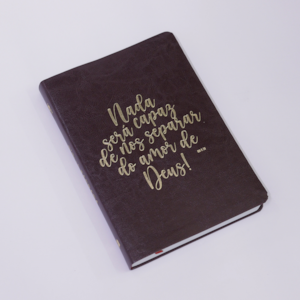 Nada
será capaz
de nos separar
do amor de
Deus!